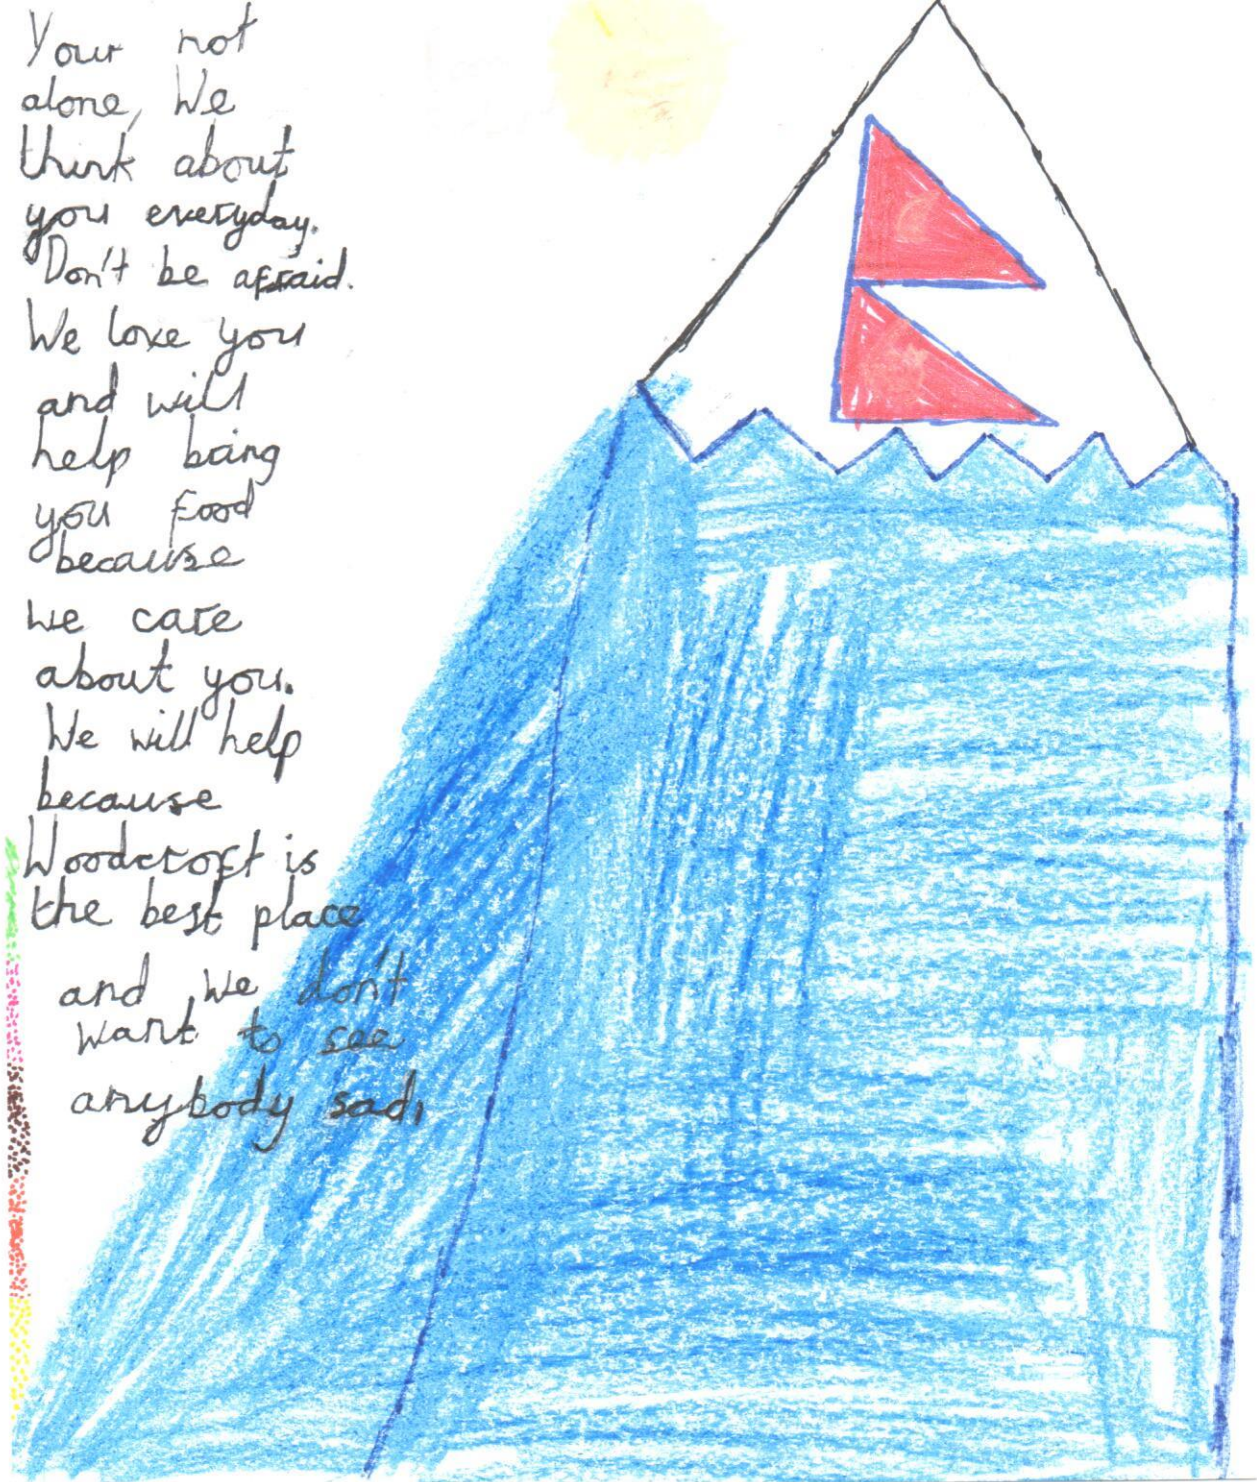 Your not
alone, We
think about
you everyday.
Don't be afraid.
We love you
and will
help bring
you food
because
we care
about you.
We will help
because
Woodcroft is
the best place
and we don't
want to see
anybody sad,